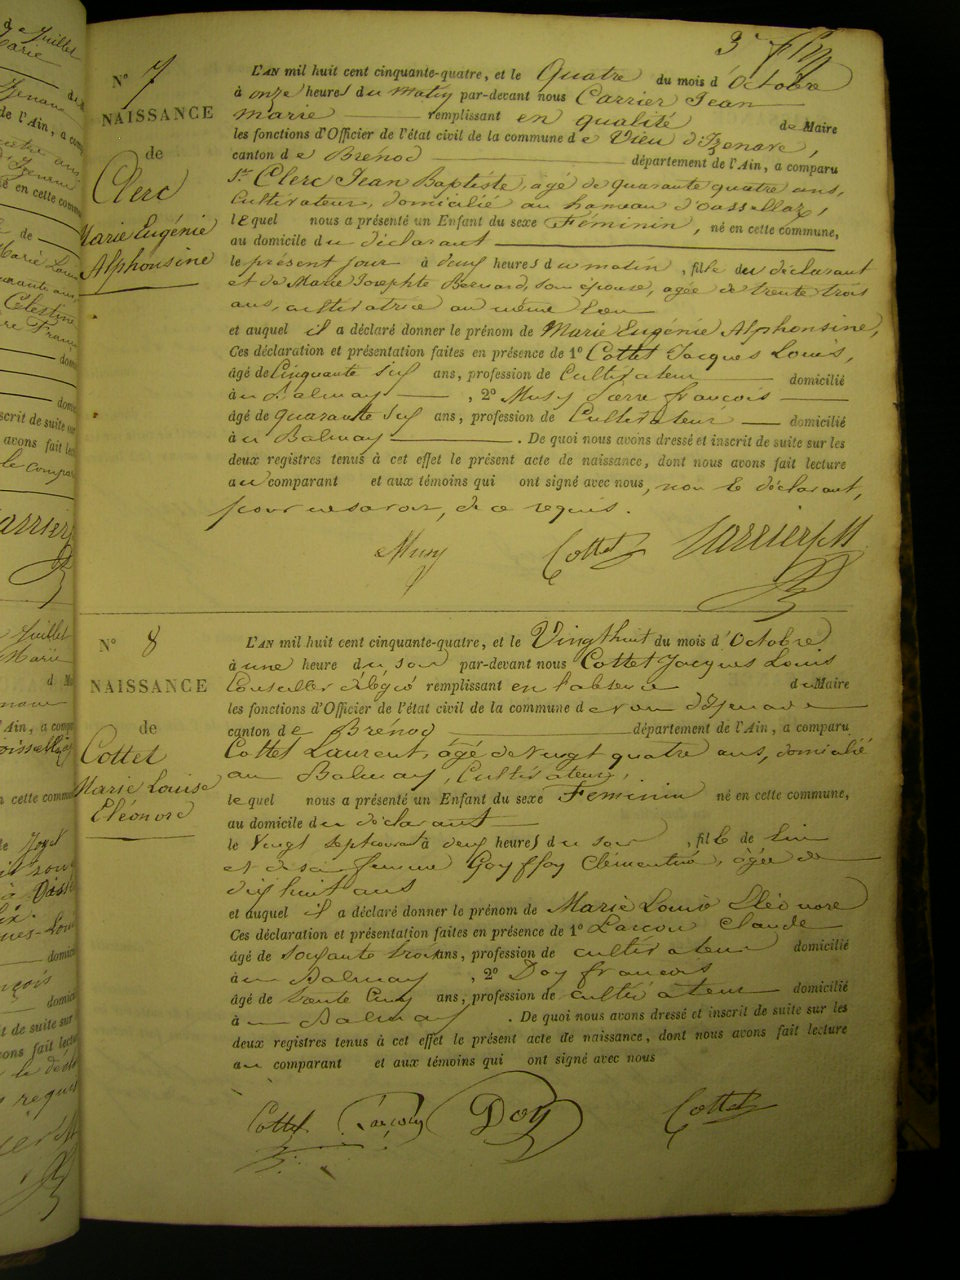 N° 7
NAISSANCE
de
Clerc
Marie Eugénie
Alphonsine
L'AN mil huit cent cinquante-quatre, et le Quatre du mois d'Octobre
à onze heures du matin par-devant nous Carrier Jean
marie remplissant en qualité de Maire
les fonctions d'Officier de l'état civil de la commune de Vieu d'Izenave,
canton de Brénod département de l'Ain, a comparu
Sr. Clerc Jean Baptiste, agé de quarante quatre ans,
Cultivateur, domicilié au hameau d'
lequel nous a présenté un Enfant du sexe Féminin, né en cette commune,
au domicile du déclarant
le présent jour à deux heures du matin, fille du déclarant
et de Marie Josephte Bernard, son épouse, agée de trente trois
ans, cultivatrice au même lieu
et auquel il a déclaré donner le prénom de Marie Eugénie Alphonsine,
Ces déclaration et présentation faites en présence de 1° Cottet Jacques Louis,
âgé de Cinquante six ans, profession de Cultivateur domicilié
à Balmay, 2° Musy Pierre françois
âgé de quarante six ans, profession de Cultivateur domicilié
à Balmay. De quoi nous avons dressé et inscrit de suite sur les
deux registres tenus à cet effet le présent acte de naissance, dont nous avons fait lecture
au comparant et aux témoins qui ont signé avec nous, non le déclarant,
pour ne savoir, de ce requis.
Musy Cottet Carrier JM
N° 8
NAISSANCE
de
Cottet
Marie Louise
Eléonore
L'AN mil huit cent cinquante-quatre, et le Vingt huit du mois d'Octobre
à une heure du soir par-devant nous Cottet Jacques Louis
Conseiller délégué remplissant en l'absence du Maire
les fonctions d'Officier de l'état civil de la commune de vieu d'Izenave
canton de Brénod département de l'Ain, a comparu
Cottet Laurent, âgé de vingt quatre ans, domicilié
au Balmay, Cultivateur,
lequel nous a présenté un Enfant du sexe Féminin né en cette commune,
au domicile du déclarant
le Vingt Sept courant à deux heures du soir, fille de lui
et de sa femme Goyffon Clémentine, âgée de
dix huit ans
et auquel il a déclaré donner le prénom de Marie Louise Eléonore
Ces déclaration et présentation faites en présence de 1° Larcon Claude
âgé de soixante trois ans, profession de cultivateur domicilié
à Balmay, 2° Doy francois
âgé de trente Cinq ans, profession de cultivateur domicilié
à Balmay. De quoi nous avons dressé et inscrit de suite sur les
deux registres tenus à cet effet le présent acte de naissance, dont nous avons fait lecture
au comparant et aux témoins qui ont signé avec nous
Cottet Larcon Doy Cottet